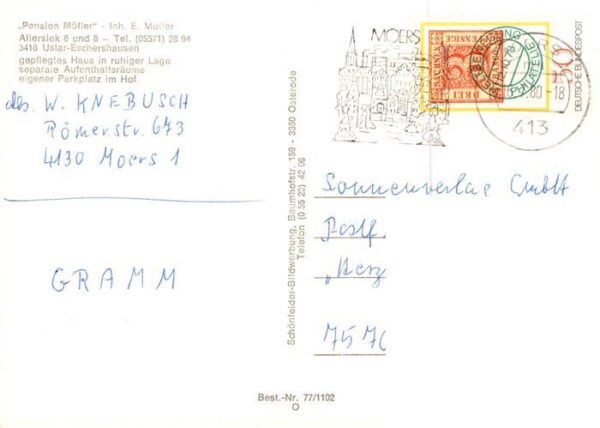 „Pension Möller" - Inh. E. Möller
Allersiek 6 und 8 - Tel. (05571) 28 94
3418 Uslar-Eschershausen
gepflegtes Haus in ruhiger Lage
separate Aufenthaltsräume
eigener Parkplatz im Hof.
abs. W. KNEBUSCH
Römerstr. 673
4130 Moers 1
GRAMM
Schönfelder-Bildwerbung, Baumhofstr. 159 - 3360 Osterode
Telefon (0 55 22) 42 06
Best.-Nr. 77/1102
O
MOERS
DREI
PFENNIGE
3
SACHSEN
50
DEUTSCHE BUNDESPOST
80-18
413
Sonnenverlag GmbH
Postf.
„Herz
757